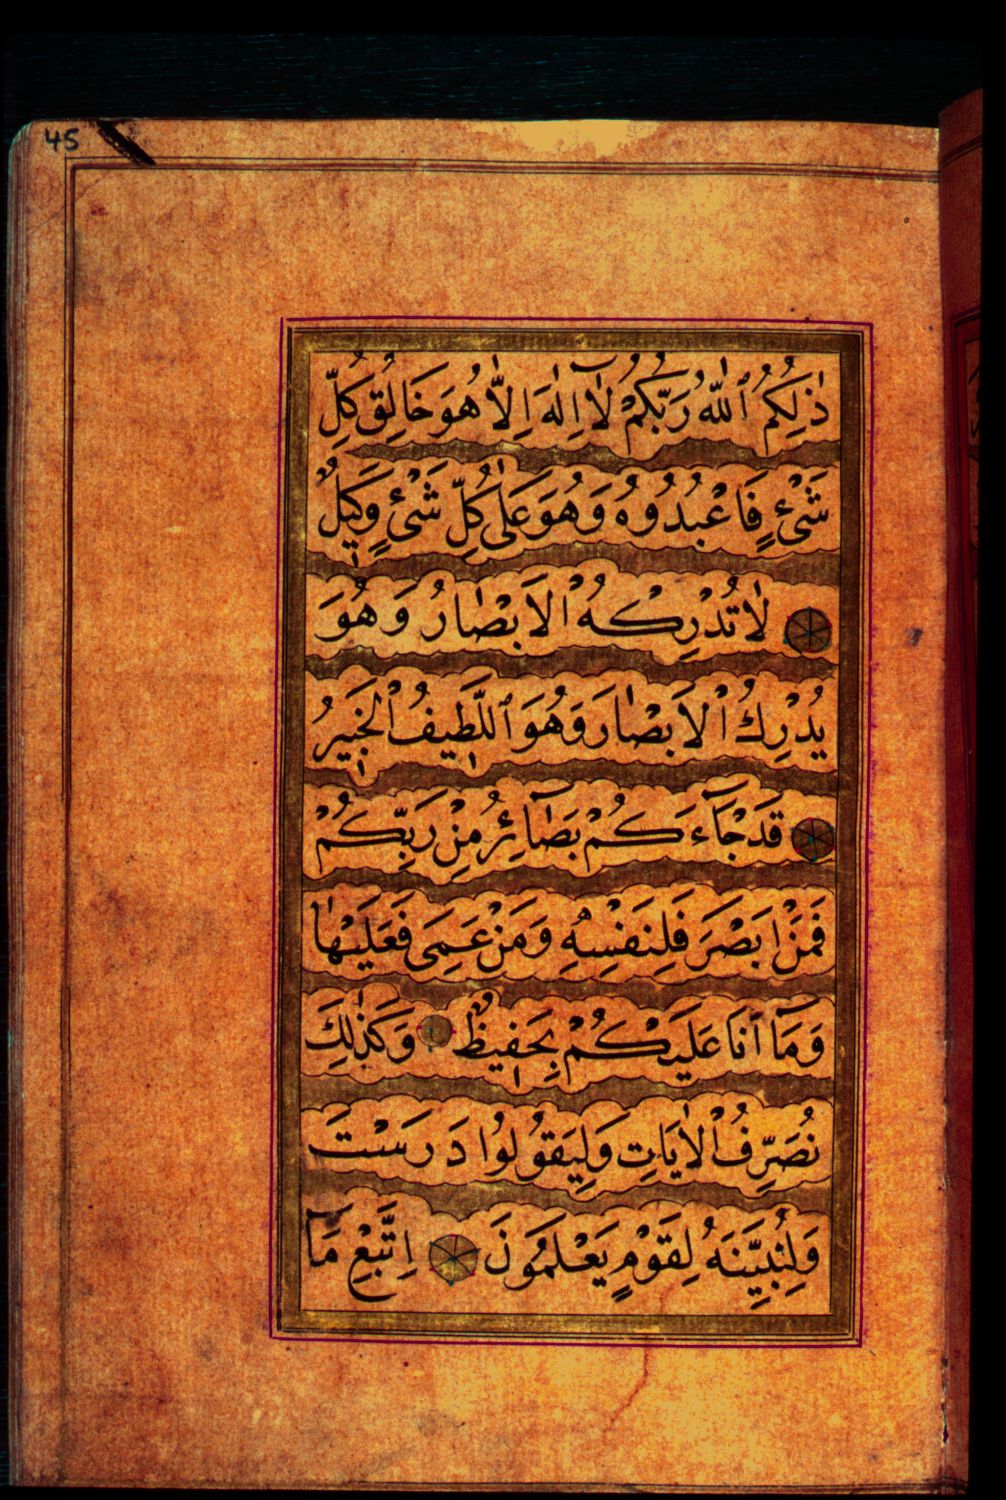 45
ذٰلِكُمُ ٱللّٰهُ رَبُّكُمْ لَآ اِلٰهَ اِلَّا هُوَ خَالِقُ كُلِّ
شَىْءٍ فَاعْبُدُوهُ وَهُوَ عَلٰى كُلِّ شَىْءٍ وَكِيلٌ
لَا تُدْرِكُهُ ٱلْاَبْصَارُ وَهُوَ
يُدْرِكُ ٱلْاَبْصَارَ وَهُوَ ٱللَّطِيفُ الْخَبِيرُ
قَدْ جَآءَكُمْ بَصَآئِرُ مِنْ رَبِّكُمْ
فَمَنْ اَبْصَرَ فَلِنَفْسِهِ وَمَنْ عَمِىَ فَعَلَيْهَا
وَمَآ اَنَا عَلَيْكُمْ بِحَفِيظٍ وَكَذٰلِكَ
نُصَرِّفُ الْاٰيَاتِ وَلِيَقُولُوا دَرَسْتَ
وَلِنُبَيِّنَهُ لِقَوْمٍ يَعْلَمُونَ اِتَّبِعْ مَآ